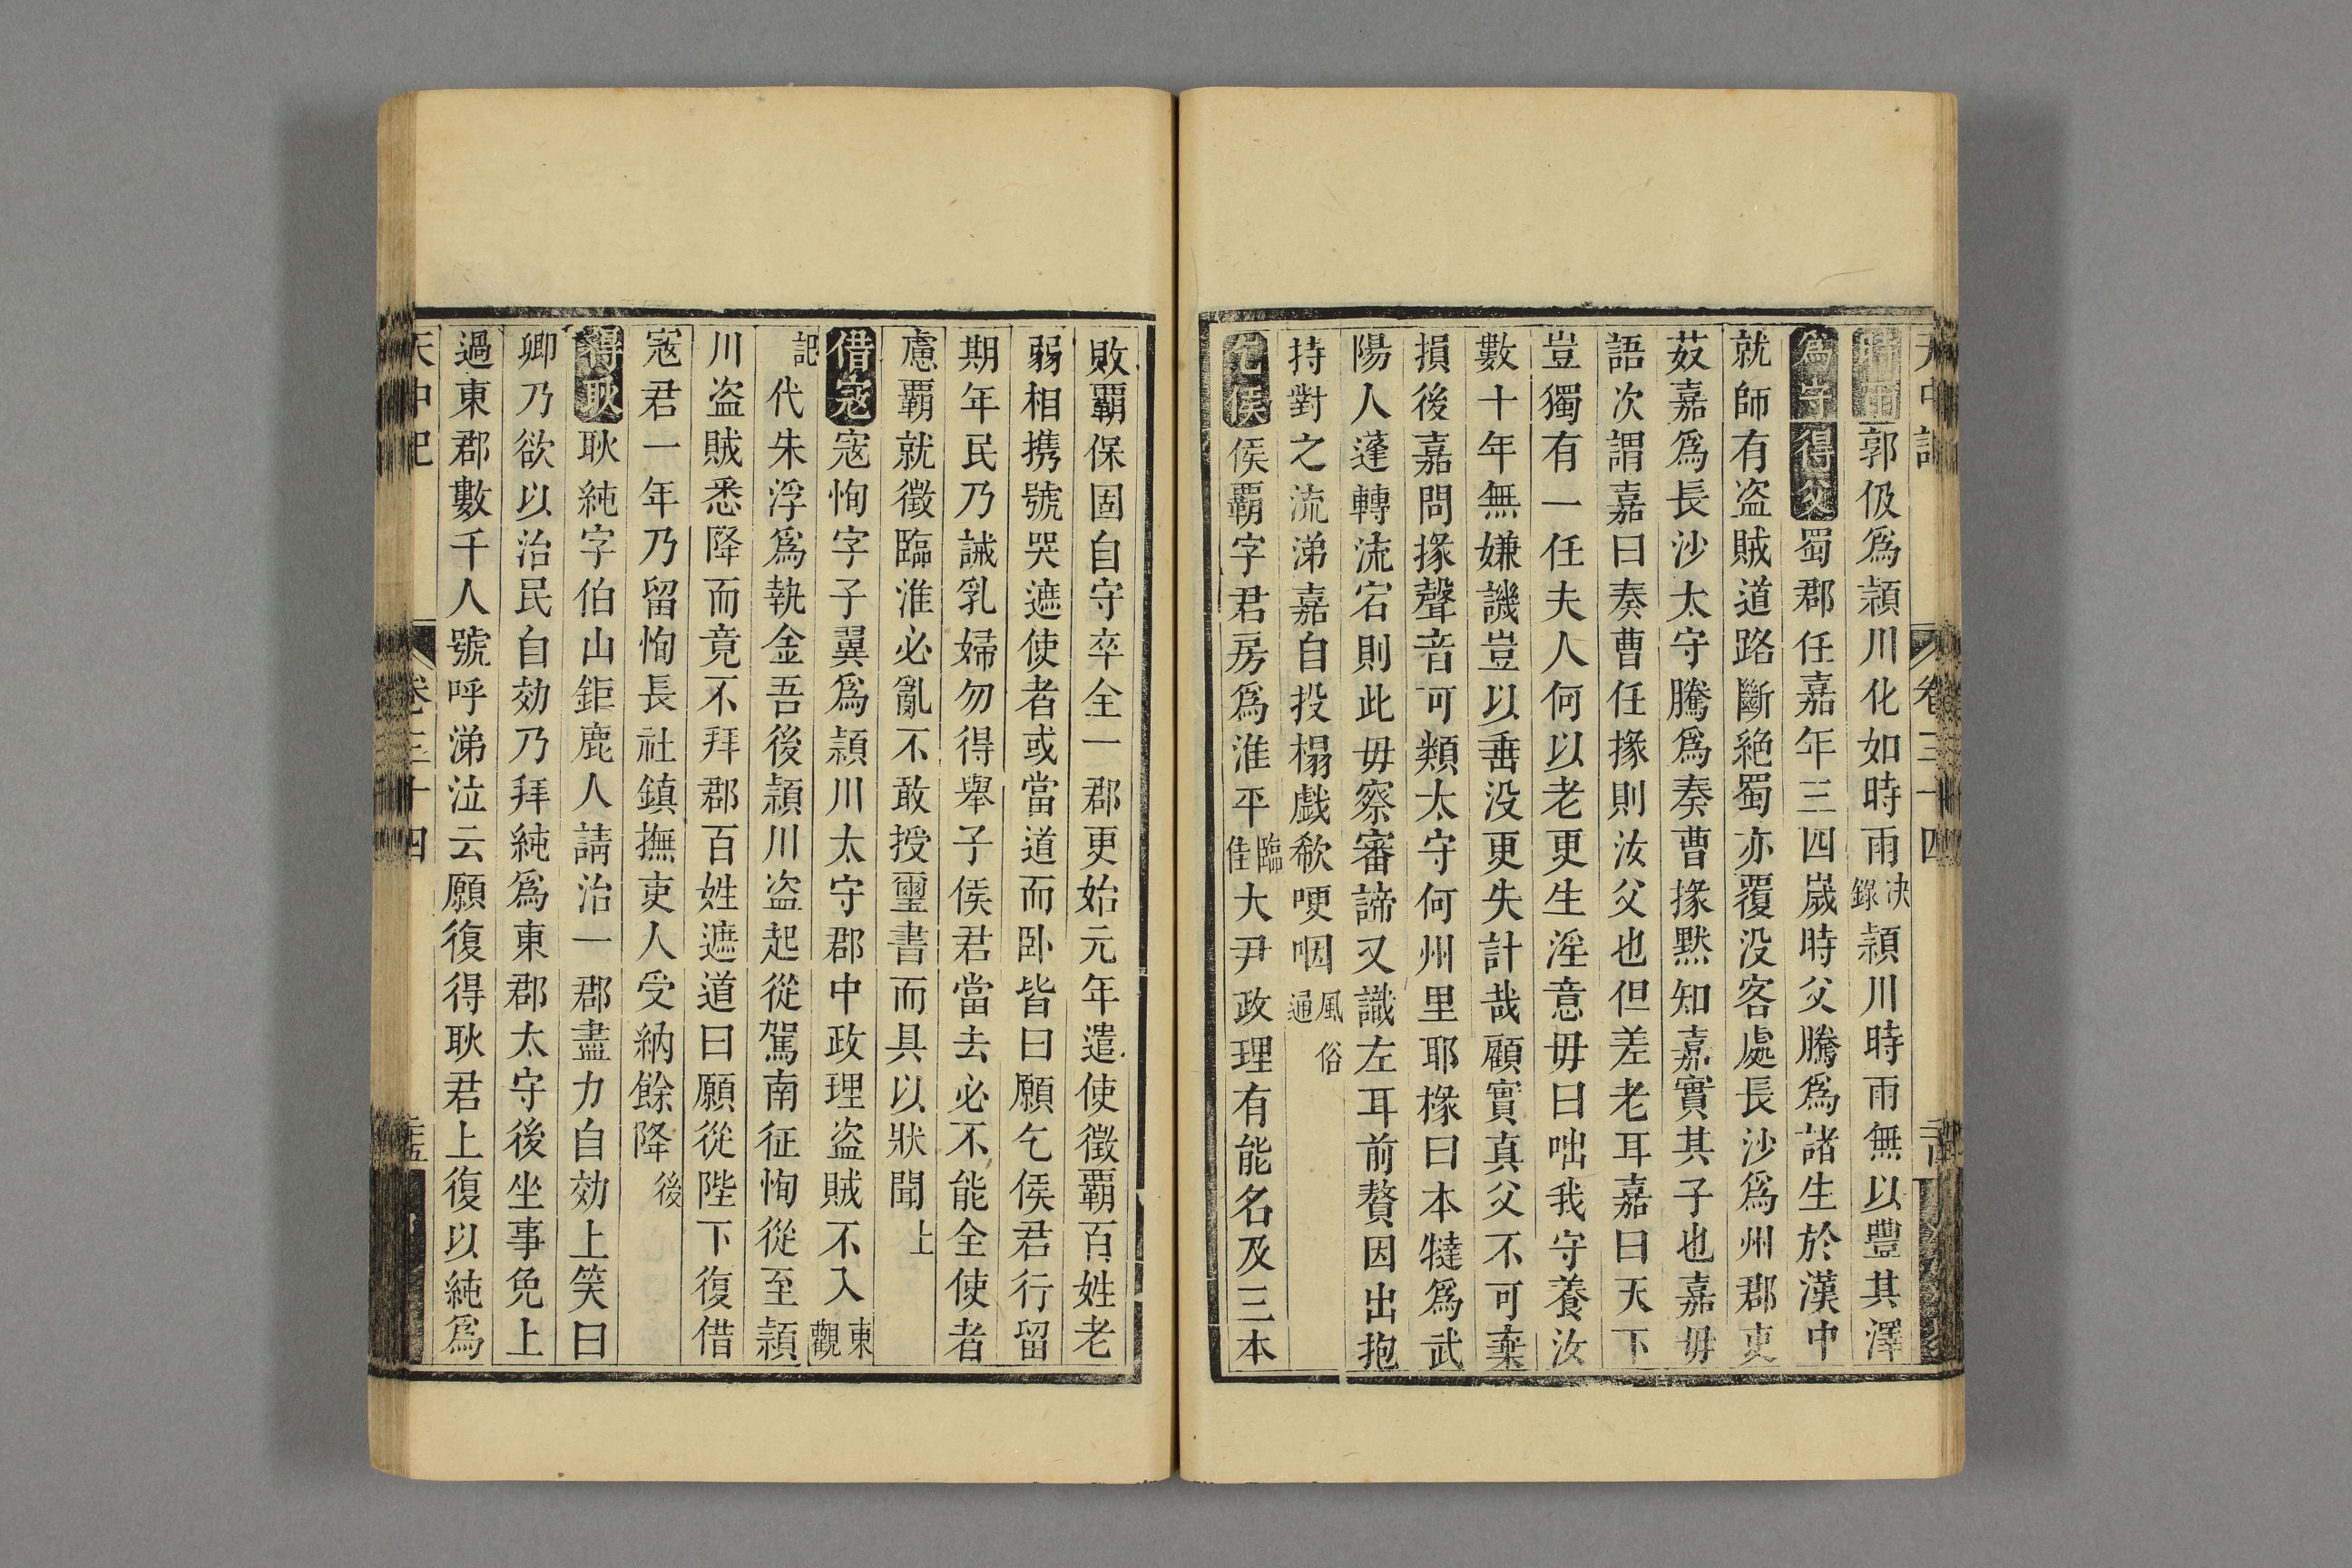 天中記 卷三十四
時雨郭伋爲潁川化如時雨决錄潁川時雨無以豐其澤
爲守得父蜀郡任嘉年三四歲時父騰爲諸生於漢中
就師有盗賊道路斷絶蜀亦覆没客處長沙爲州郡吏
妭嘉爲長沙太守騰爲奏曹掾黙知嘉實其子也嘉毋
語次謂嘉曰奏曹任掾則汝父也但差老耳嘉曰天下
豈獨有一任夫人何以老更生淫意毋曰咄我守養汝
數十年無嫌譏豈以垂没更失計哉顧實真父不可棄
損後嘉問掾聲音可類太守何州里耶椽曰本犍爲武
陽人蓬轉流宕則此毋察審諦又識左耳前贅因出抱
持對之流涕嘉自投榻戯欷哽咽風俗通
乞侯侯覇字君房爲淮平臨佳大尹政理有能名及三本
敗覇保固自守卒全一郡更始元年遣使徵覇百姓老
弱相携號哭遮使者或當道而卧皆曰願乞侯君行留
期年民乃誡乳婦勿得舉子侯君當去必不能全使者
慮覇就徵臨淮必亂不敢授璽書而具以狀聞上
借宼宼恂字子翼爲潁川太守郡中政理盗賊不入東觀
記代朱浮爲執金吾後潁川盗起從駕南征恂從至潁
川盗賊悉降而竟不拜郡百姓遮道曰願從陛下復借
宼君一年乃留恂長社鎮撫吏人受納餘降後
得耿耿純字伯山鉅鹿人請治一郡盡力自効上笑曰
卿乃欲以治民自効乃拜純爲東郡太守後坐事免上
過東郡數千人號呼涕泣云願復得耿君上復以純爲
天中記 卷三十四